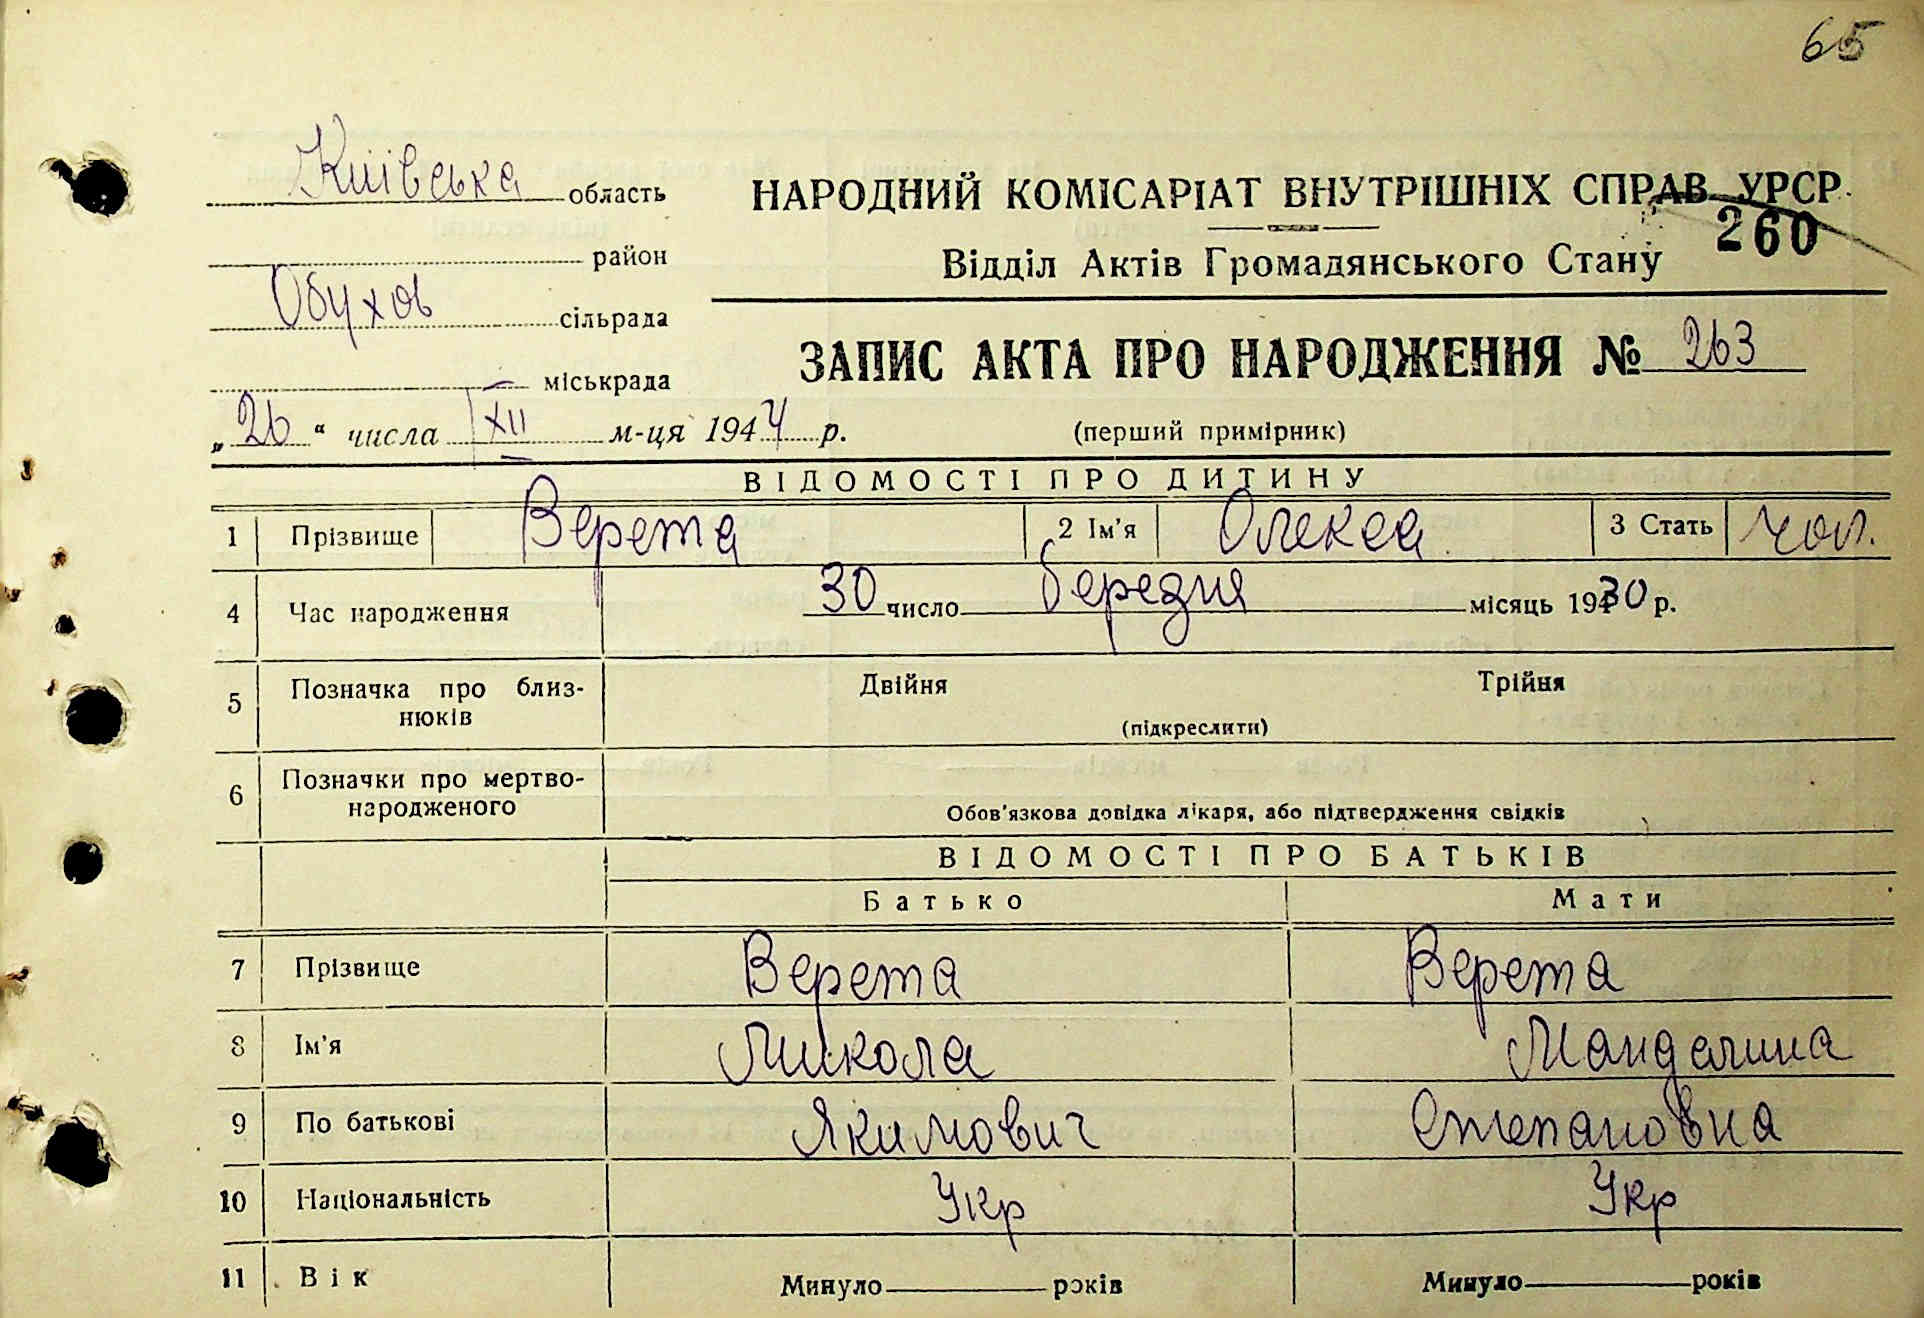 65
Київська область
НАРОДНИЙ КОМІСАРІАТ ВНУТРІШНІХ СПРАВ УРСР.
260
район
Відділ Актів Громадянського Стану
Обухов сільрада
міськрада
ЗАПИС АКТА ПРО НАРОДЖЕННЯ № 263
„26“ числа XII м-ця 1944 р.
(перший примірник)
ВІДОМОСТІ ПРО ДИТИНУ
1 Прізвище Верета 2 Ім’я Олекса 3 Стать чол.
4 Час народження 30 число березня місяць 1930 р.
5 Позначка про близ-
нюків
Двійня Трійня
(підкреслити)
6 Позначки про мертво-
народженого
Обов’язкова довідка лікаря, або підтвердження свідків
ВІДОМОСТІ ПРО БАТЬКІВ
Батько Мати
7 Прізвище Верета Верета
8 Ім’я Микола Мандалина
9 По батькові Якимович Степановна
10 Національність Укр Укр
11 Вік Минуло років Минуло років